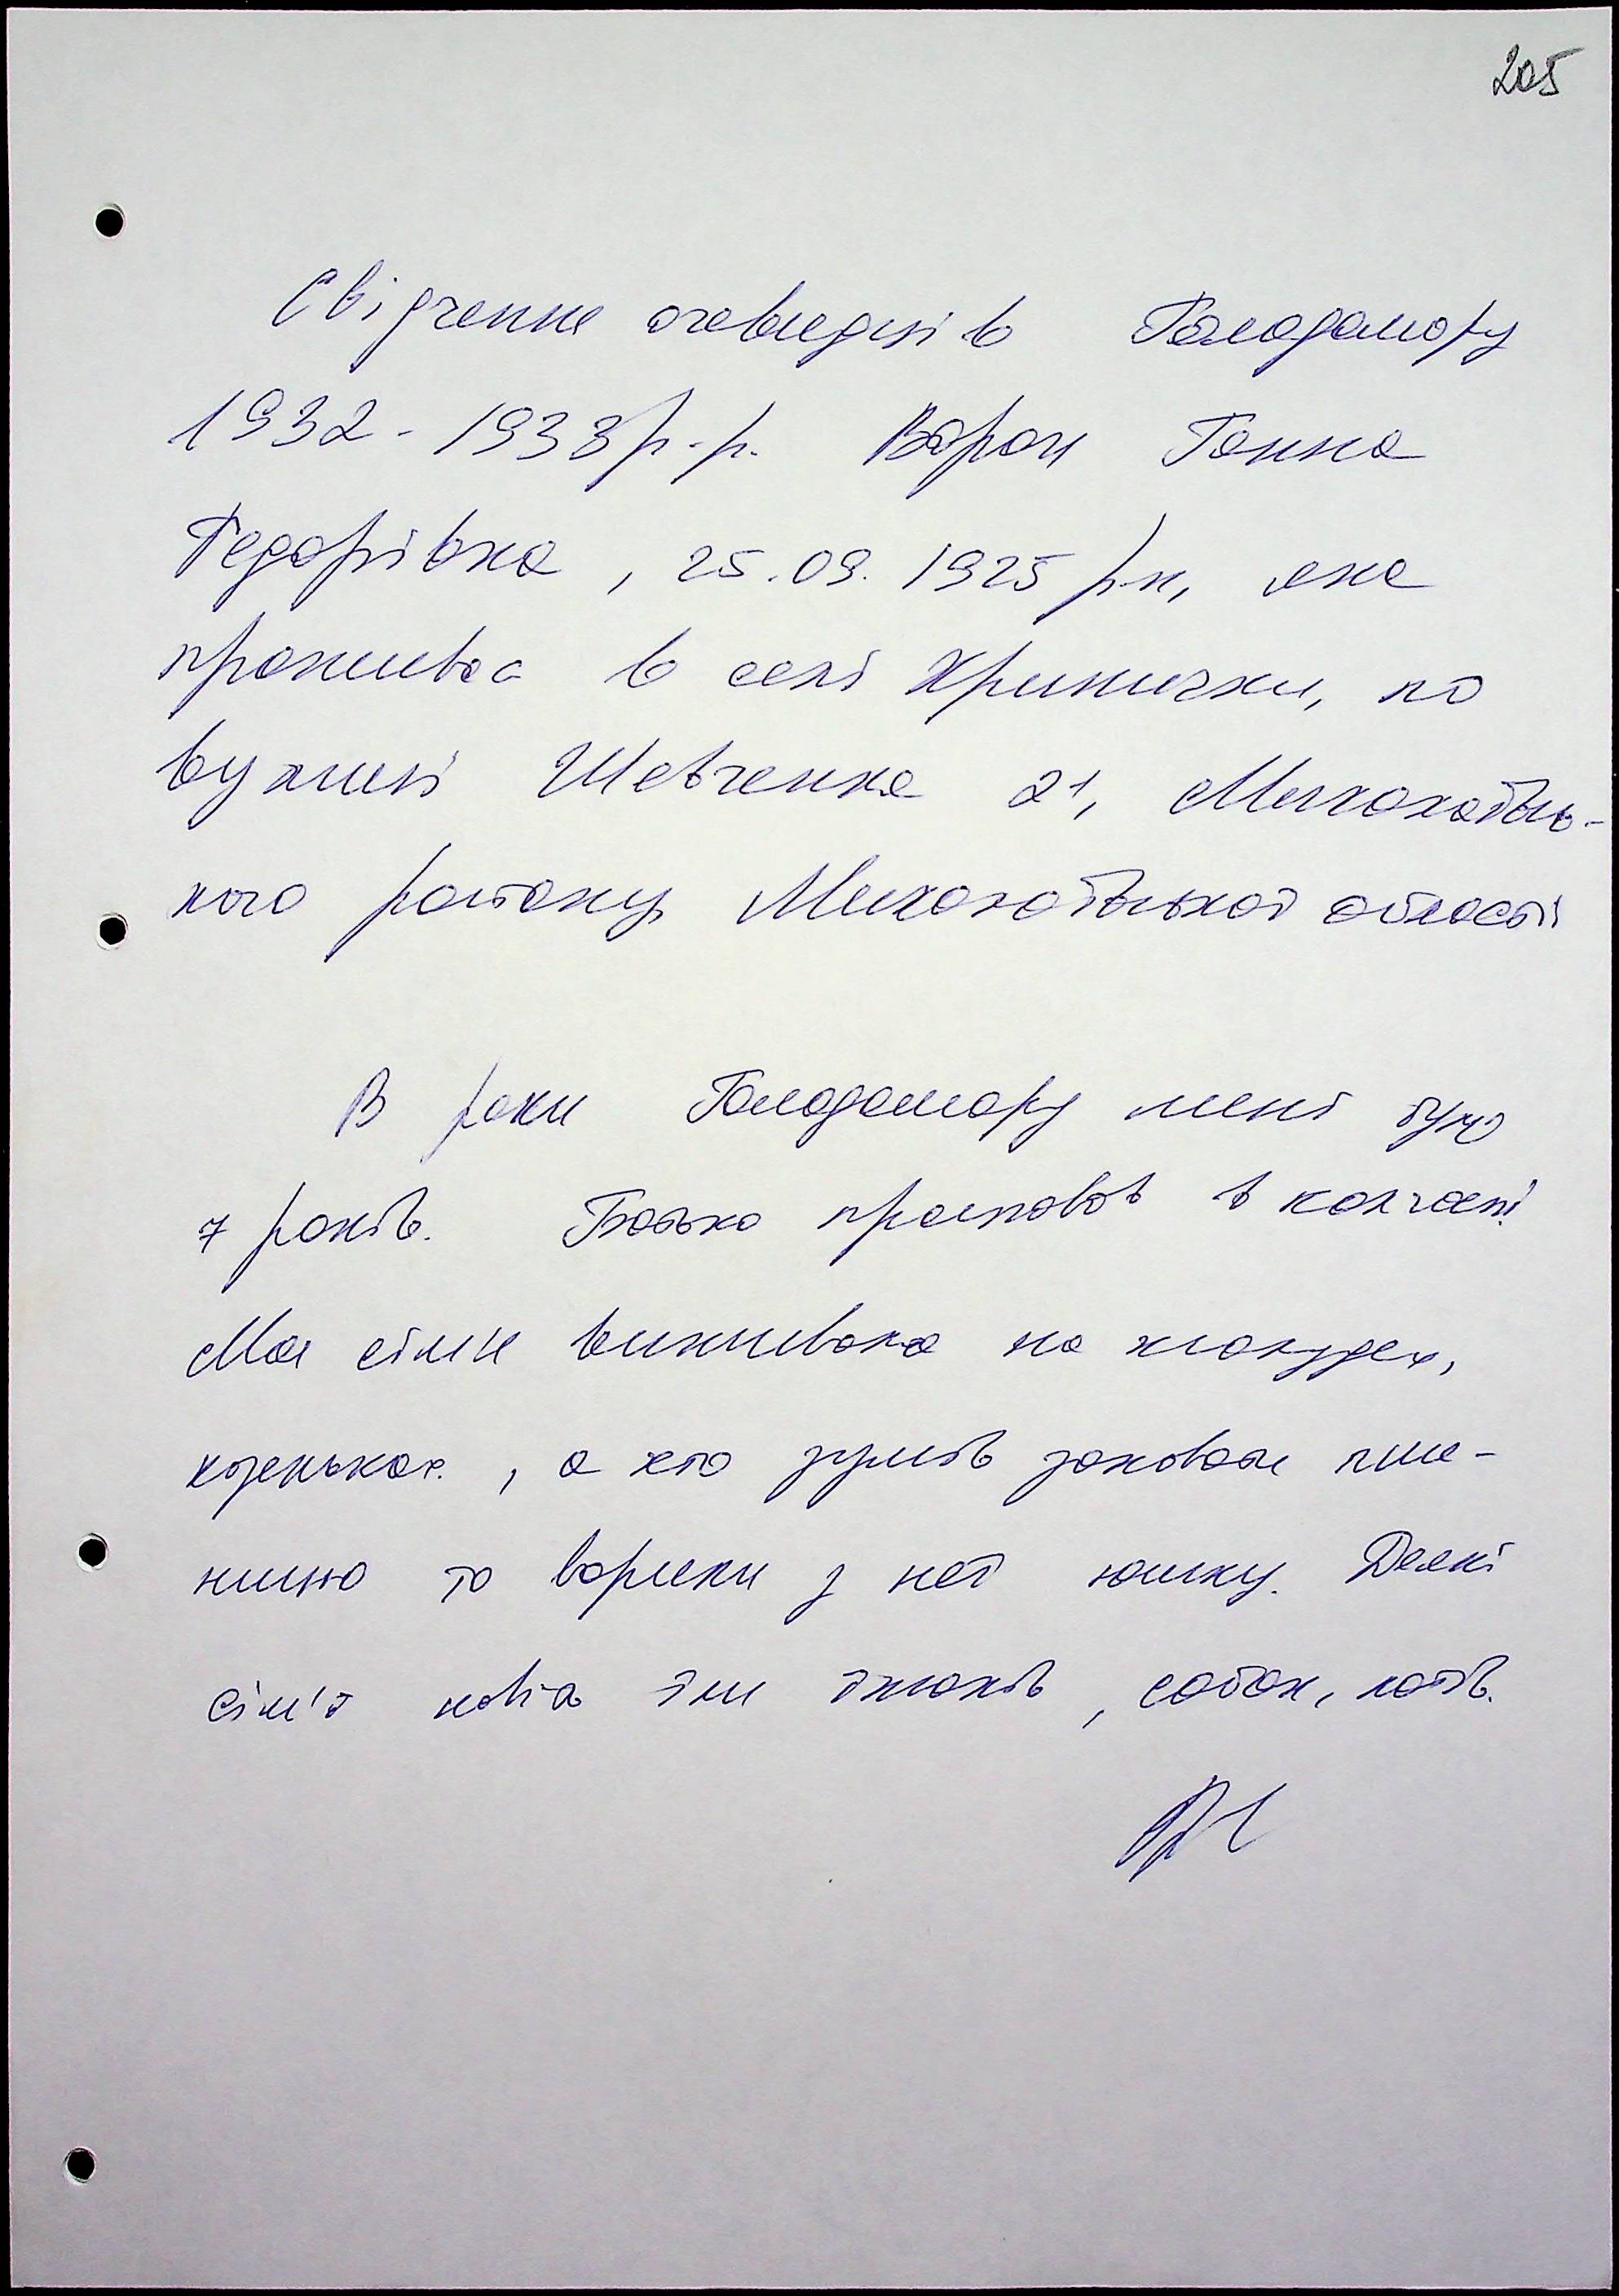 205
Свідчення очевидців Голодомору
1932-1933р.-р. Варон Ганна
Федорівна, 25.09.1925 р.н, яка
проживає в селі Кринички, по
вулиці Шевченка 21, Миколаївсь-
кого району Миколаївської області
В роки Голодомору мені було
7 років. Батько працював в колгоспі
Моя сім'я виживала на жолудях,
коріньках, а хто зумів заховати пше-
ницю то варили з неї юшку. Деякі
сім'ї навіть їли їжаків, собак, котів.